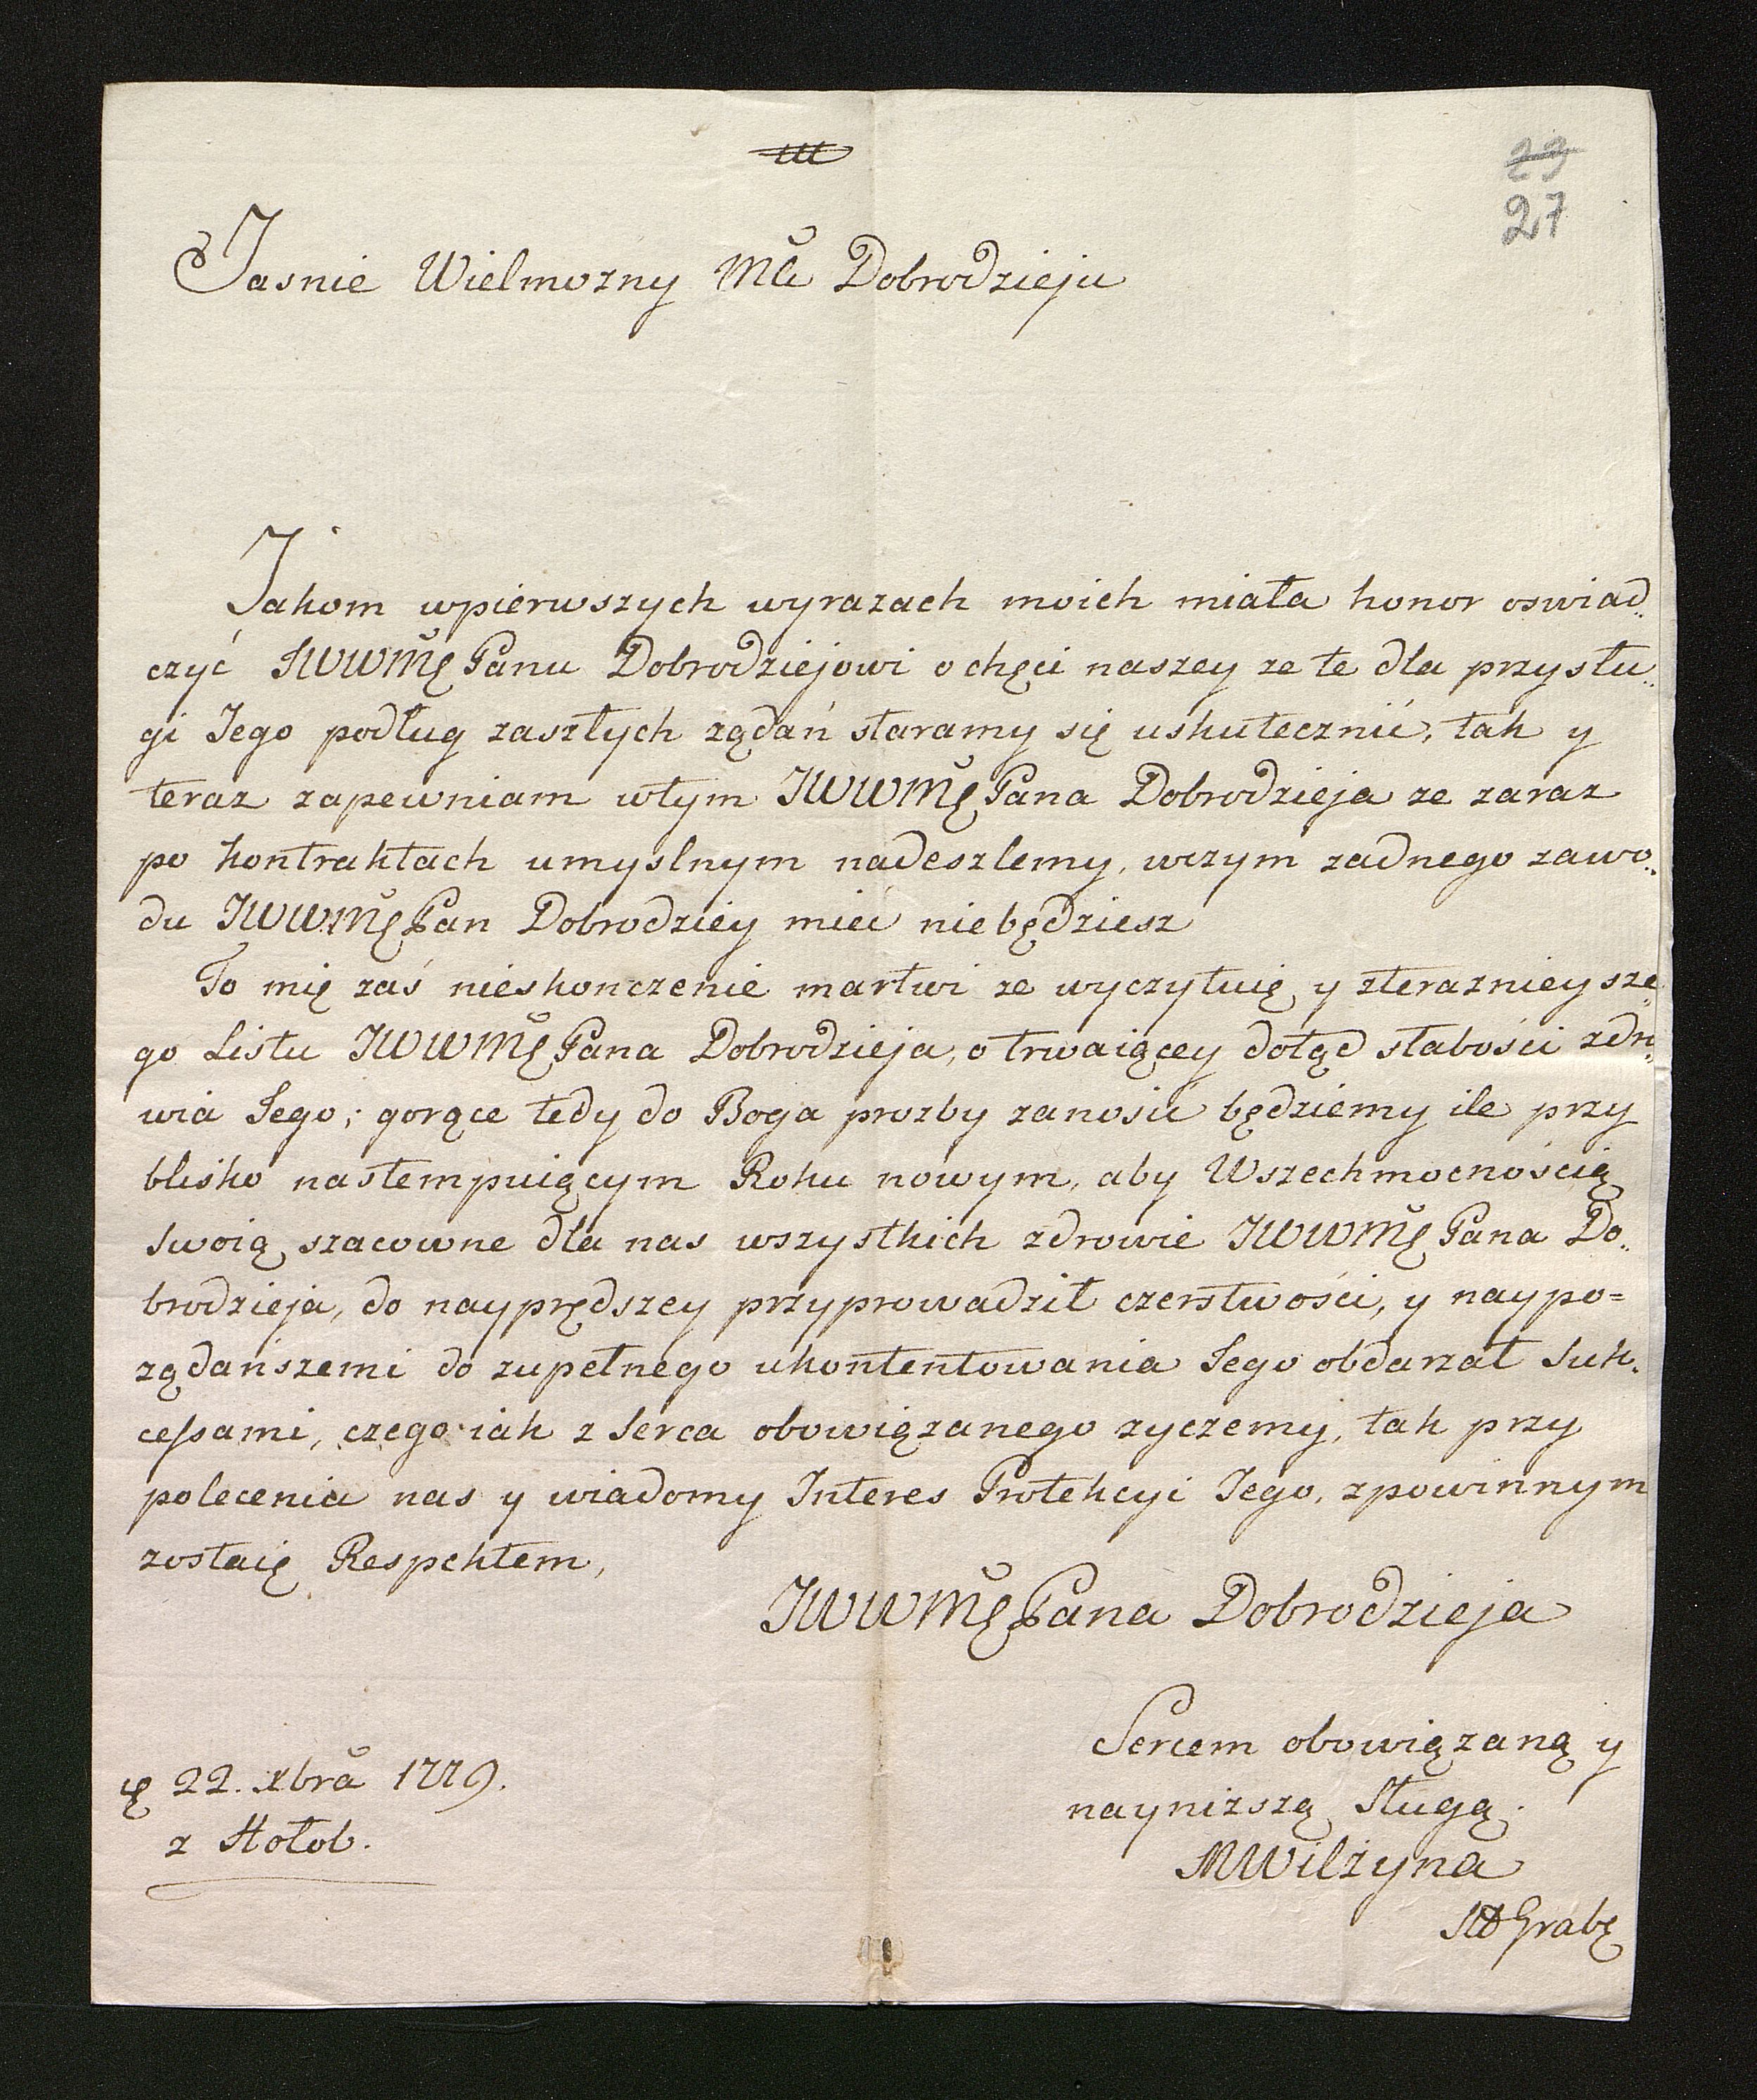 29
27
Jasnie Wielmozny Mći Dobrodzieju
Jakom wpierwszych wyrazach moich miała honor oswiad„
czyć JWWMę Panu Dobrodziejowi o chęci naszey ze te dla przysłu„
gi Jego podług zaszłych ządań staramy się uskutecznić, tak y
teraz zapewniam wtym JWWMę Pana Dobrodzieja ze zaraz
po kontraktach umyslnym nadeszlemy, wczym zadnego zawo„
du JWWMę Pan Dobrodziey mieć niebędziesz
To mię zaś nieskonczenie martwi ze wyczytuię y zteraznieysze
go Listu JWWMę Pana Dobrodzieja, o trwaiącey dotąd słabości zdro„
wia Jego; gorące tedy do Boga prozby zanosić będziemy ile przy
blisko nastempuiącym Roku nowym, aby Wszechmocnością
swoią szacowne dla nas wszystkich zdrowie JWWMę Pana Do„
brodzieja, do nayprędszey przyprowadził czerstwości, y naypo=
ządańszemi do zupełnego ukontentowania Jego obdarzał Suk„
cessami, czego iak z serca obowiązanego zyczemy, tak przy
polecenia nas y wiadomy Interes Protekcyi Jego, zpowinnym
zostaię Respektem,
JWWMę Pana Dobrodzieja
Sercem obowiązaną y
naynizszą Sługą.
22. Xbra 1779.
z Hołob.
MWilżyna